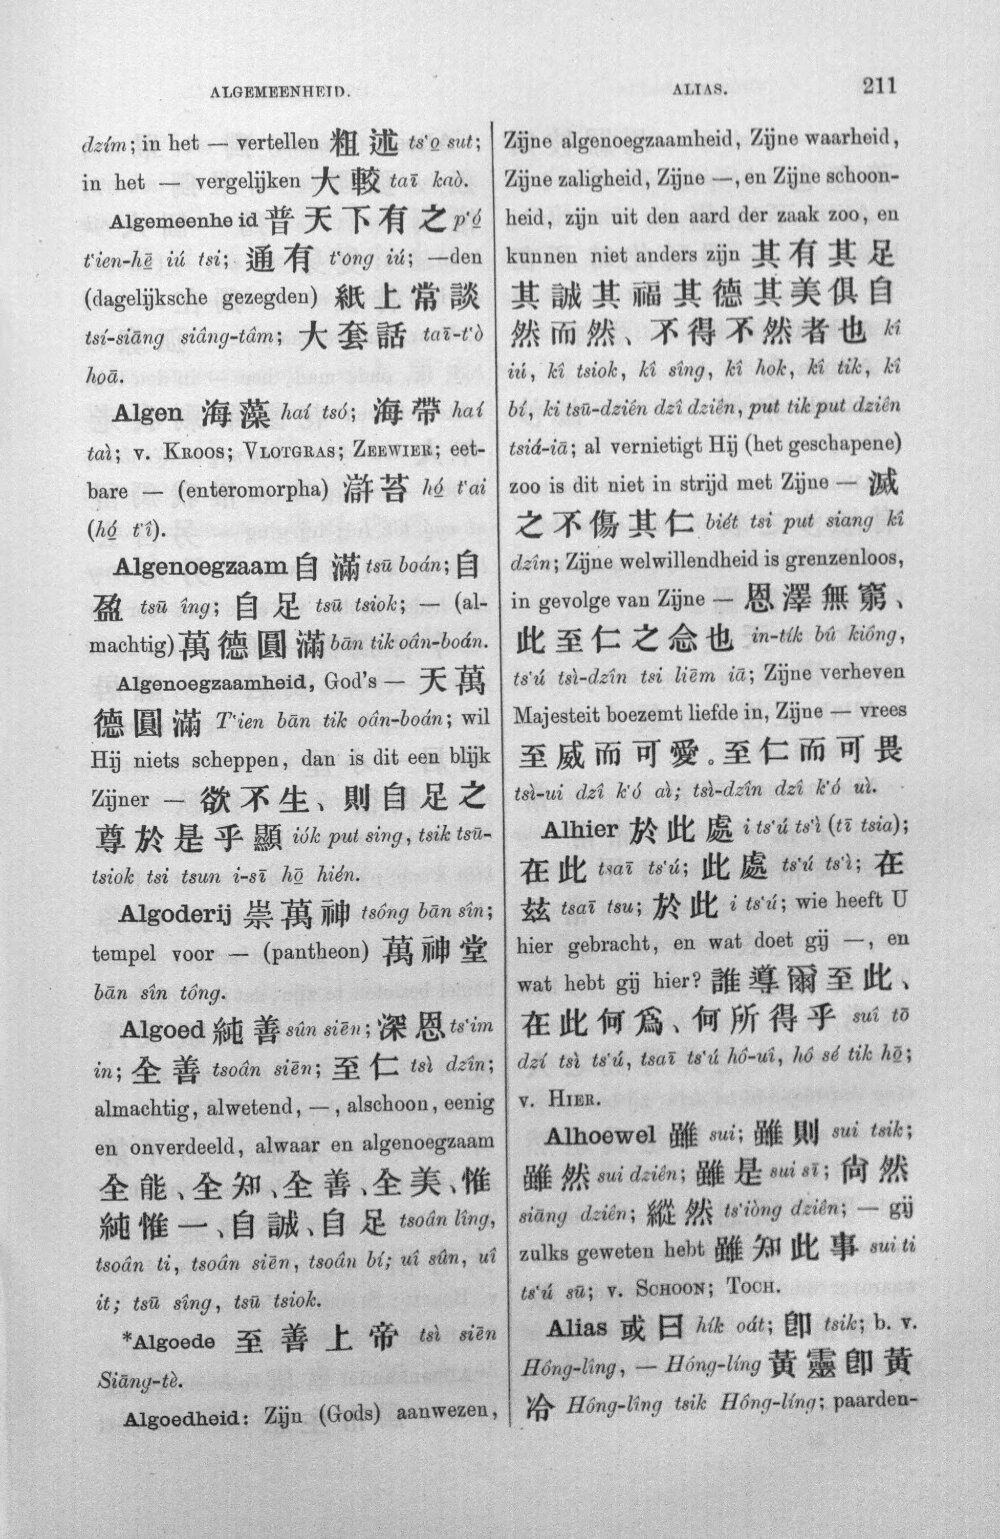 ALGEMEENHEID.
ALIAS.
211
dzím; in het — vertellen 粗述 ts‘o̱ sut;
in het — vergelijken 大較 taī kaò.
Algemeenheid 普天下有之 p‘ó̱
t‘ien-hē̱ iú tsi; 通有 t‘ong iú; —den
(dagelijksche gezegden) 紙上常談
tsí-siāng siâng-tâm; 大套話 taī-t‘ò
hoā.
Algen 海藻 haí tsó; 海帶 haí
taì; v. Kroos; Vlotgras; Zeewier; eet-
bare — (enteromorpha) 滸苔 hó̱ t‘ai
(hó̱ t‘î).
Algenoegzaam 自滿 tsū boán; 自
盈 tsū îng; 自足 tsū tsiok; — (al-
machtig) 萬德圓滿 bān tik oân-boán.
Algenoegzaamheid, God's — 天萬
德圓滿 T‘ien bān tik oân-boán; wil
Hij niets scheppen, dan is dit een blijk
Zijner — 欲不生、則自足之
尊於是乎顯 iók put sing, tsik tsū-
tsiok tsi tsun i-sī hō̱ hién.
Algoderij 崇萬神 tsông bān sîn;
tempel voor — (pantheon) 萬神堂
bān sîn tông.
Algoed 純善 sûn siēn; 深恩 ts‘im
in; 全善 tsoân siēn; 至仁 tsì dzîn;
almachtig, alwetend, —, alschoon, eenig
en onverdeeld, alwaar en algenoegzaam
全能、全知、全善、全美、惟
純惟一、自誠、自足 tsoân lîng,
tsoân ti, tsoân siēn, tsoân bí; uî sûn, uî
it; tsū sîng, tsū tsiok.
*Algoede 至善上帝 tsì siēn
Siāng-tè.
Algoedheid: Zijn (Gods) aanwezen,
Zijne algenoegzaamheid, Zijne waarheid,
Zijne zaligheid, Zijne —, en Zijne schoon-
heid, zijn uit den aard der zaak zoo, en
kunnen niet anders zijn 其有其足
其誠其福其德其美俱自
然而然、不得不然者也 kî
iú, kî tsiok, kî sîng, kî hok, kî tik, kî
bí, ki tsū-dzién dzî dziên, put tik put dziên
tsiá-iā; al vernietigt Hij (het geschapene)
zoo is dit niet in strijd met Zijne — 滅
之不傷其仁 biét tsi put siang kî
dzîn; Zijne welwillendheid is grenzenloos,
in gevolge van Zijne — 恩澤無窮、
此至仁之念也 in-tík bû kiông,
ts‘ú tsì-dzîn tsi liēm iā; Zijne verheven
Majesteit boezemt liefde in, Zijne — vrees
至威而可愛。至仁而可畏
tsì-ui dzî k‘ó aì; tsì-dzîn dzî k‘ó uì.
Alhier 於此處 i ts‘ú ts‘ì (tī tsia);
在此 tsaī ts‘ú; 此處 ts‘ú ts‘ì; 在
茲 tsaī tsu; 於此 i ts‘ú; wie heeft U
hier gebracht, en wat doet gij —, en
wat hebt gij hier? 誰導爾至此、
在此何爲、何所得乎 suî tō
dzí tsì ts‘ú, tsaī ts‘ú hô-uî, hô sé tik hō̱;
v. Hier.
Alhoewel 雖 sui; 雖則 sui tsik;
雖然 sui dziên; 雖是 sui sī; 尙然
siāng dziên; 縱然 ts‘iòng dziên; — gij
zulks geweten hebt 雖知此事 sui ti
ts‘ú sū; v. Schoon; Toch.
Alias 或曰 hík oát; 卽 tsik; b. v.
Hông-lîng, — Hóng-líng 黃靈卽黃
冷 Hông-lîng tsik Hông-líng; paarden-